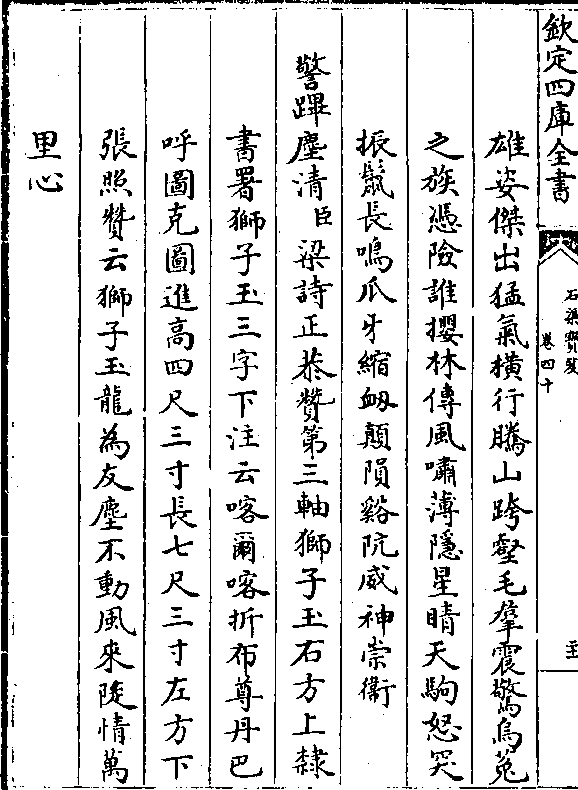 欽定四庫全書
石渠寶笈
卷四十
雄姿傑出猛氣橫行騰山跨壑毛羣震驚烏菟
之族憑險誰攖林傳風嘯薄隱星晴天駒怒突
振鬛長鳴爪牙縮衂顛隕谿阬威神崇衞
警蹕塵清臣梁詩正恭贊第三軸獅子玉石方上隸
書署獅子玉三字下注云喀爾喀折布尊丹巴
呼圖克圖進高四尺三寸長七尺三寸左方下
張照贊云獅子玉龍為友塵不動風來陡情萬
里心